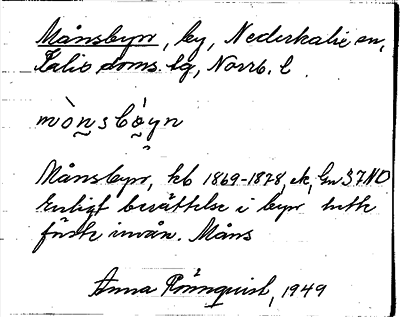 Månsbyn, by, Nederkalix sn,
Kalix doms. lg, Norrb. l.
mònsbòyn
Månsbyn, kb 1869-1878, ek, Gn 37 NO
Enligt berättelse i byn hette
förste invån. Måns
Anna Rönnquist, 1949